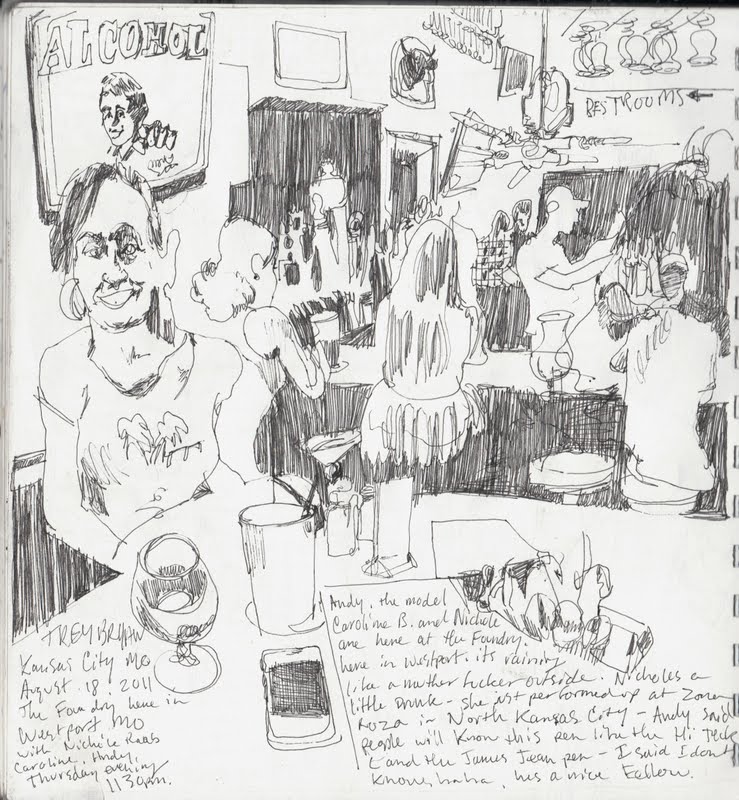 ALCOHOL
RESTROOMS
TREY BRYAN
Kansas City Mo
August. 18. 2011
The Foundry here in
Westport MO
with Nichole Raab
Caroline, Andy,
Thursday evening
1130pm.
Andy, the model
Caroline B. and Nichole
are here at the Foundry.
here in Westport. its raining
like a mother fucker outside. Nicholes a
little Drunk - she just performed up at Zona
Roza in North Kansas City - Andy said
people will Know this pen like the Hi Teck
C and the James Jean pen - I said I dont
Know haha, hes a nice Fellow.